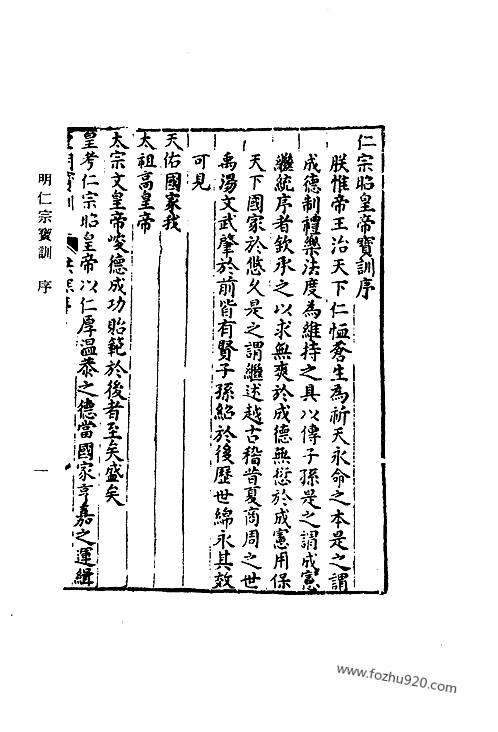 仁宗昭皇帝寶訓序
朕惟帝王治天下仁恤蒼生為祈天永命之本是之謂
成德制禮樂法度為維持之具以傳子孫是之謂成憲
繼統序者欽承之以求無爽於成德無愆於成憲用保
天下國家於悠久是之謂繼述越古稽昔夏商周之世
禹湯文武肇於前皆有賢子孫紹於後歷世綿永其效
可見
天佑國家我
太祖高皇帝
太宗文皇帝峻德成功貽範於後者至矣盛矣
皇考仁宗昭皇帝以仁厚溫恭之德當國家亨嘉之運緝
明仁宗寶訓 序
一
www.fozhu920.com